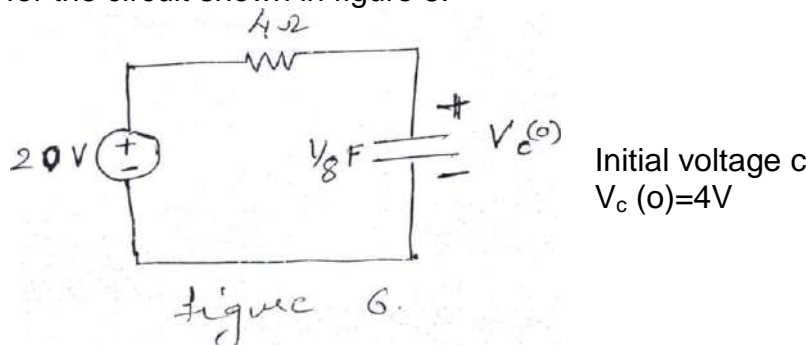 for the circuit shown in figure 6.
4Ω
20V
+
-
1/8 F
+
-
Vc(o)
Initial voltage c
Vc (o)=4V
figure 6.